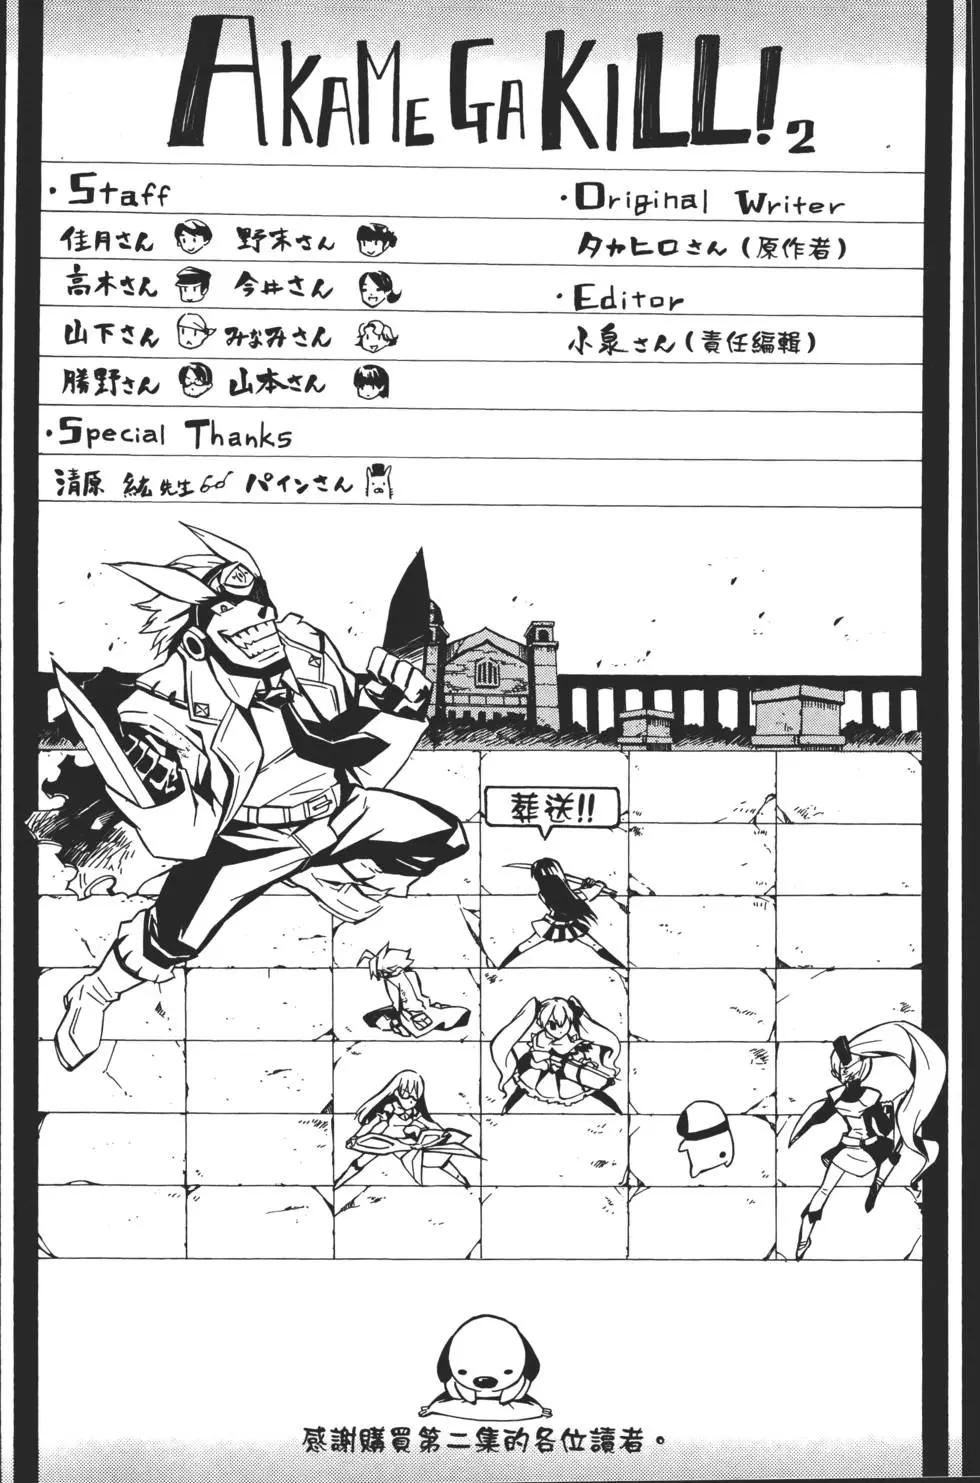 AKAME GA KILL! 2
・Staff
佳月さん 野末さん
高木さん 今井さん
山下さん みなみさん
勝野さん 山本さん
・Special Thanks
清原 紘先生 パインさん
・Original Writer
タカヒロさん(原作者)
・Editor
小泉さん(責任編輯)
葬送!!
感謝購買第二集的各位讀者。